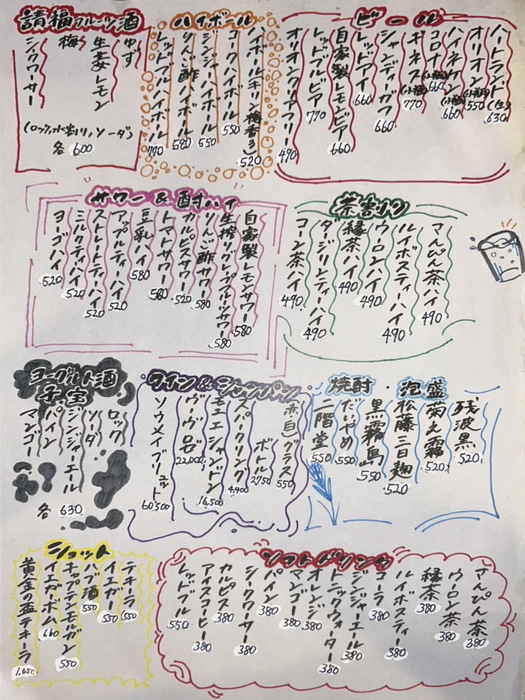 ビール
ハートランド(生) 630
オリオン(小瓶) 550
ハイネケン(小瓶) 660
コロナ(小瓶) 660
ギネス(小瓶) 770
シャンディーガフ 660
レッドアイ 660
自家製レモンビア 660
レッドブルビア 770
オリオンクリアフリー 490
ハイボール
ハイボール 520
コークハイボール 550
ジンジャーハイボール 550
りんご酢ハイボール 580
レッドブルハイボール 770
請福フルーツ酒
ゆず
生姜レモン
梅
シークワーサー
(ロック、水割り、ソーダ)
各600
茶割り
さんぴん茶ハイ 490
ルイボスティーハイ 490
ウーロンハイ 490
緑茶ハイ 490
ダージリンティーハイ 490
コーン茶ハイ 490
サワー&酎ハイ
自家製レモンサワー 580
生搾りグレープフルーツサワー 580
りんご酢サワー 580
カルピスサワー 520
トマトサワー 580
豆乳ハイ 580
アップルティーハイ 520
ストレートティーハイ 520
ミルクティーハイ 520
ヨーゴハイ 520
焼酎・泡盛
残波黒 520
菊之露 520
松藤三日麹 520
黒霧島 550
だいやめ 550
二階堂 550
ワイン&シャンパン
(赤・白)グラス 550
ボトル 2750
スパークリング 4,400
モエシャンドン 16,500
ヴーヴ 22,000
ソウメイブリュット 60,500
ヨーグルト酒
子宝
ロック
ソーダ
ジンジャーエール
パイン
マンゴー
各630
ソフトドリンク
さんぴん茶 380
ウーロン茶 380
緑茶 380
ルイボスティー 380
コーラ 380
ジンジャーエール 380
トニックウォーター 380
オレンジ 380
マンゴー 380
パイン 380
シークワーサー 380
カルピス 380
アイスコーヒー 380
レッドブル 550
ショット
テキーラ 550
イエガー 550
ハブ酒 550
キャプテンモルガン 550
イエガーボム 660
黄金の盃テキーラ 1,650